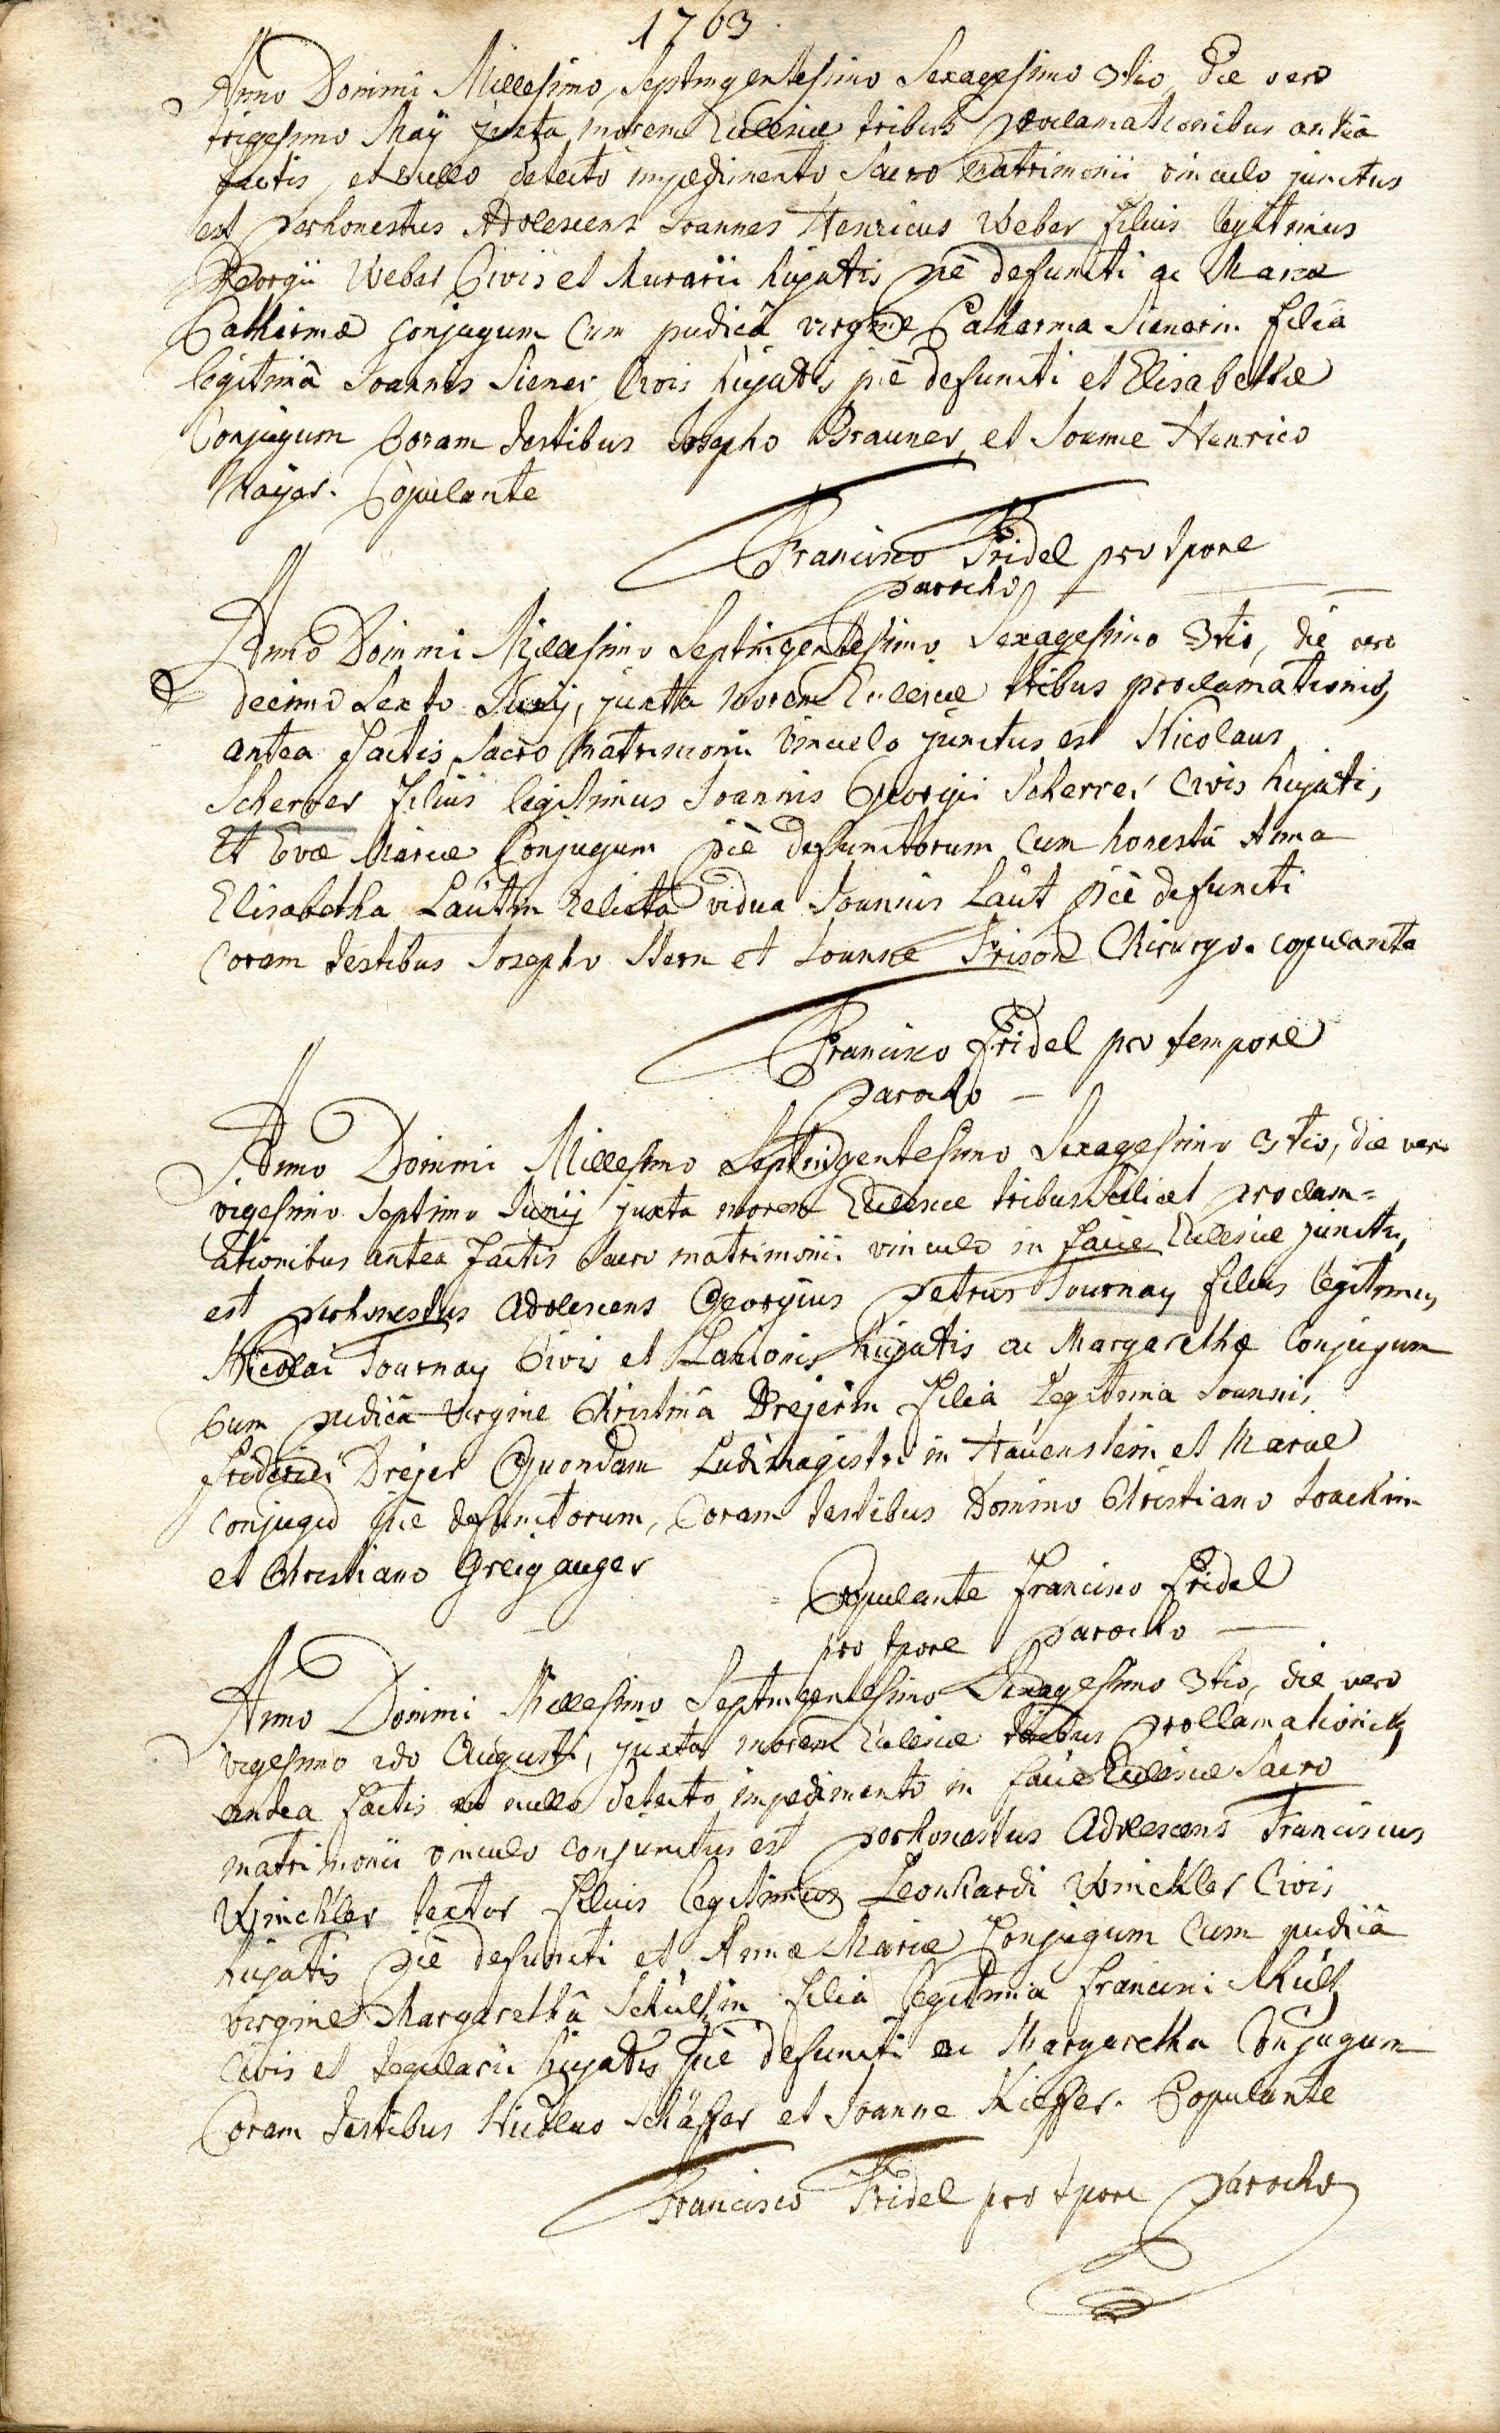 1763
Anno Domini Millesimo Septingentesimo Sexagesimo 3tio, die vero
trigesimo Maÿ juxta morem Ecclesiæ tribus proclamationibus antea
factis, et nullo detecto impedimento Sacro matrimonii vinculo junctus
est perhonestus Adolescens Joannes Henricus Weber filius legitimus
Georgii Weber Civis et Murarii hujatis piè defuncti ac Mariæ
Catharinæ conjugum cum pudicâ virgine Catharina Sienerin filiâ
legitimâ Joannis Siener Civis hujatis piè defuncti et Elisabethæ
Conjugum Coram testibus Josepho Brauner, et Joanne Henrico
Mayer. Copulante
Francisco Fridel pro tpore
parocho
Anno Domini Millesimo Septingentesimo Sexagesimo 3tio, die vero
decimo Sexto Junij, juxta morem Ecclesiæ tribus proclamationib9
antea factis, Sacro matrimonii vinculo junctus est Nicolaus
Scherrer filius legitimus Joannis Georgii Scherrer Civis hujatis,
et Evæ Mariæ Conjugum piè defunctorum cum honestâ Anna
Elisabetha Lautin relicta vidua Joannis Laut piè defuncti
coram testibus Josepho Stern et Joanne Frison Chirurgo. copulante
Francisco Fridel pro tempore
parocho —
Anno Domini Millesimo Septindgentesimo Sexagesimo 3tio, die vero
vigesimo Septimo Junij juxta morem Ecclesiæ tribus scilicet proclam=
ationibus antea factis Sacro matrimonii vinculo in facie Ecclesiæ junctus
est perhonestus adolescens Georgius Petrus Tournay filius legitimus
Nicolai Tournay Civis et Lanionis hujatis ac Margarethæ Conjugum
Cum pudicâ virgine Christinâ Drejerin filiâ Legitima Joannis
friderici Drejer Quondam Ludimagistri in Havenstein et Mariæ
conjugum piè defunctorum, Coram testibus Domino Christiano Joachim
et Christiano Greiganger
Copulante francisco fridel
pro tpore parocho —
Anno Domini Millesimo Septingentesimo Sexagesimo 3tio, die vero
vigesimo 2do Augusti, juxta morem Ecclesiæ tribus proclamationib9
antea factis et nullo detecto impedimento in facie Ecclesiæ Sacro
matrimonii vinculo conjunctus est perhonestus Adolescens Franciscus
Winckler textor filius legitimus Leonhardi Winckler Civis
hujatis piè defuncti et Annæ Mariæ Conjugum Cum pudicâ
virgine Margarethâ Schultzin filiâ legitimâ francisci Schultz
Civis et tegularii hujatis piè defuncti ac Margaretha Conjugum
Coram testibus Nicolao Schäffer et Joanne Kieffer. Copulante
Francisco Fridel pro tpore parocho